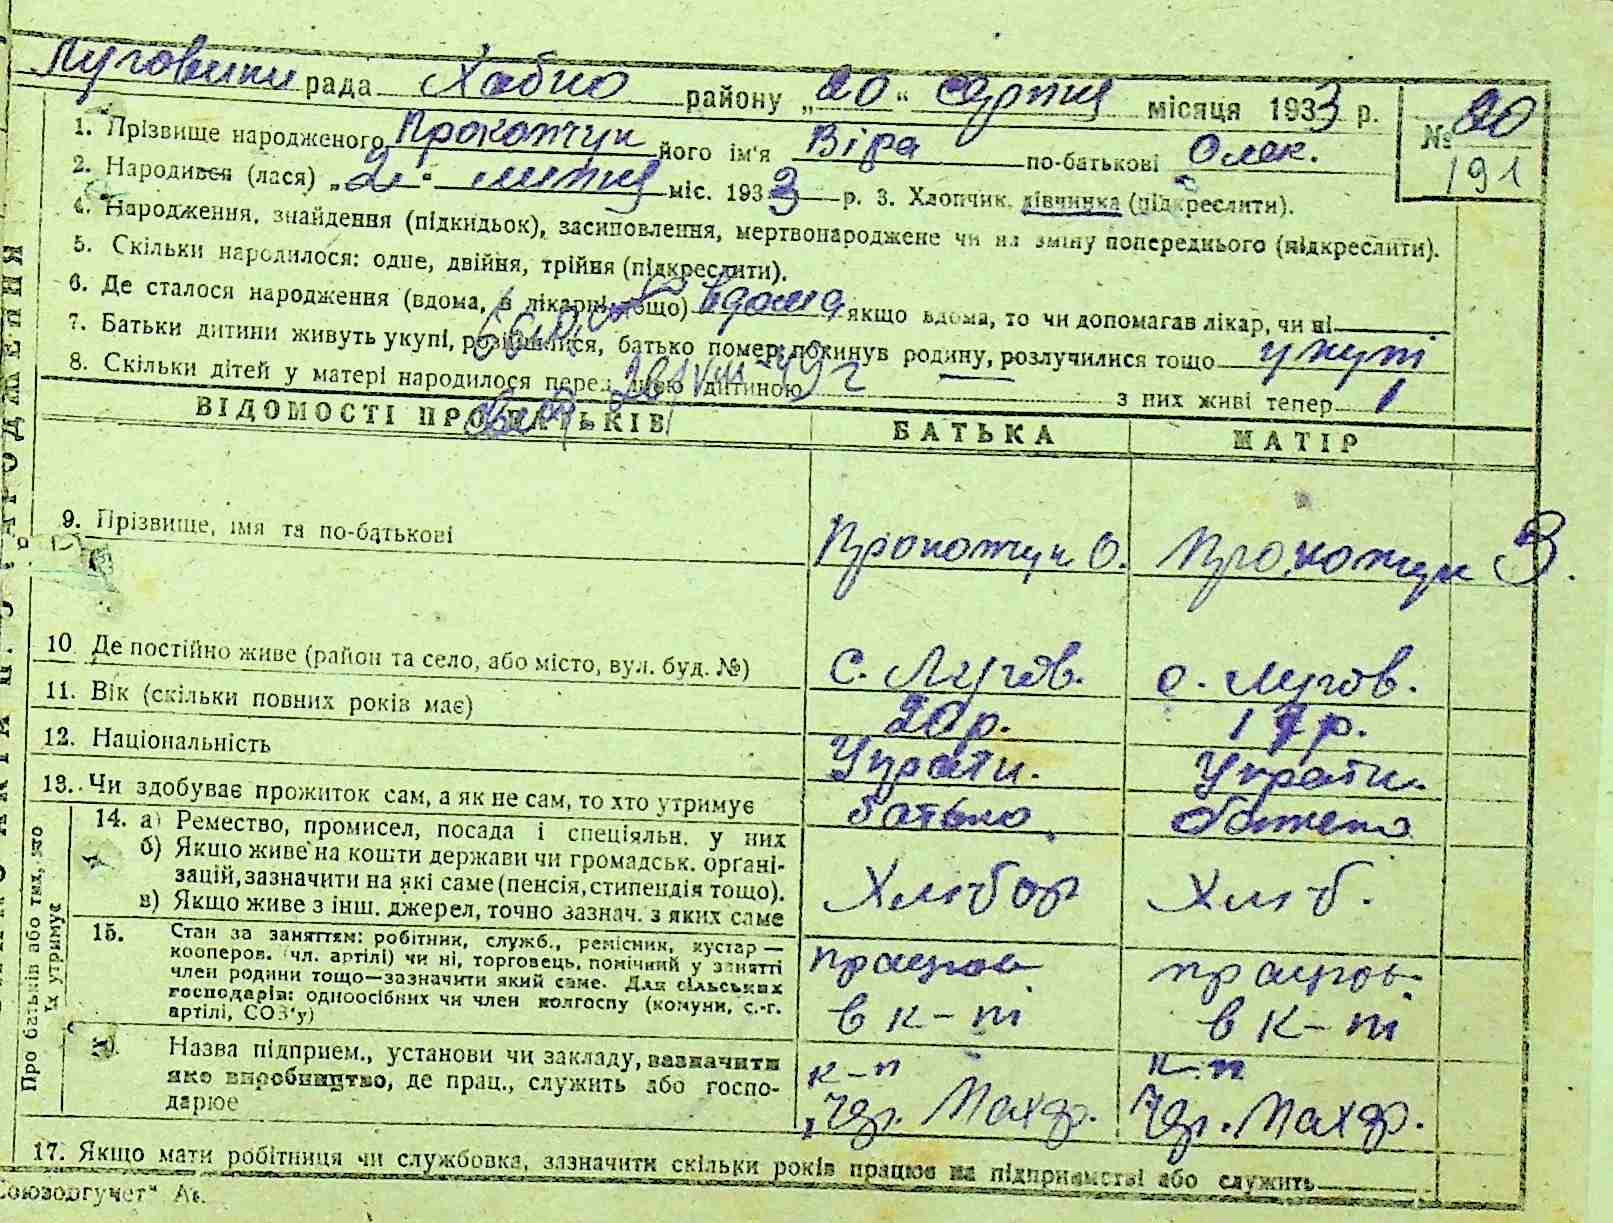 Луговики рада Хабно району „20“ серпня місяця 1933 р.
№ 20
191
1. Прізвище народженого Прокопчук його ім'я Віра по-батькові Олек.
2. Народився (лася) „2“ липня міс. 1933 р. 3. Хлопчик, дівчинка (підкреслити).
4. Народження, знайдення (підкидьок), засиновлення, мертвонароджене чи на зміну попереднього (підкреслити).
5. Скільки народилося: одне, двійня, трійня (підкреслити).
6. Де сталося народження (вдома, в лікарні тощо) вдома якщо вдома, то чи допомагав лікар, чи ні
7. Батьки дитини живуть укупі, розійшлися, батько помер, покинув родину, розлучилися тощо укупі
8. Скільки дітей у матері народилося перед цією дитиною з них живі тепер 1
ВІДОМОСТІ ПРО БАТЬКІВ БАТЬКА МАТІР
9. Прізвище, імя та по-батькові Прокопчук О. Прокопчук З.
10 Де постійно живе (район та село, або місто, вул. буд. №) С. Лугов. с. Лугов.
11. Вік (скільки повних років має) 20 р. 19 р.
12. Національність Украти. Украти.
13. Чи здобуває прожиток сам, а як не сам, то хто утримує батько
Про батьків або тих, хто їх утримує
14. а) Ремество, промисел, посада і спеціяльн. у них
б) Якщо живе на кошти держави чи громадськ. органі-
зацій, зазначити на які саме (пенсія, стипендія тощо). Хлібор Хліб.
в) Якщо живе з інш. джерел, точно зазнач. з яких саме
15. Стан за заняттям: робітник, служб., ремісник, кустар —
кооперов. (чл. артілі) чи ні, торговець, помічний у занятті
член родини тощо—зазначити який саме. Для сільських
господарів: одноосібних чи член колгоспу (комуни, с.-г.
артілі, СОЗ'у)
працює працює
в к-пі в к-пі
Назва підприєм., установи чи закладу, зазначити
яке виробництво, де прац., служить або госпо-
дарює
к-п к-п
17. Якщо мати робітниця чи службовка, зазначити скільки років працює на підприємстві або служить
Союзоргучет"